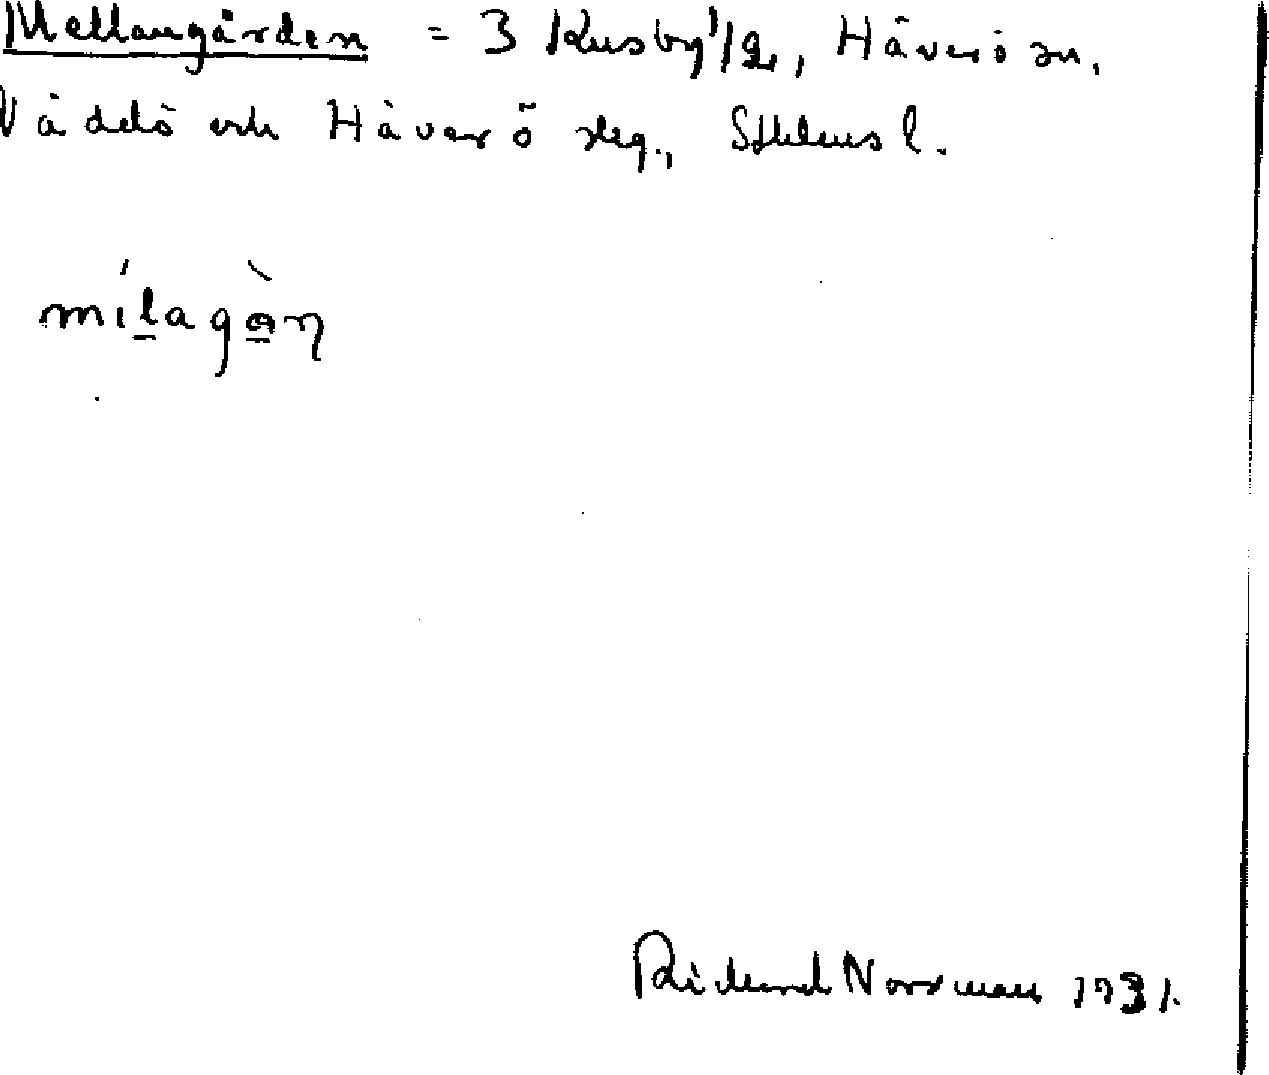 Mellangården = 3 Kusby 1/2, Häverö sn,
Väddö och Häverö slg., Sthlms l.
mílagàn
Rickard Norrman 1931.